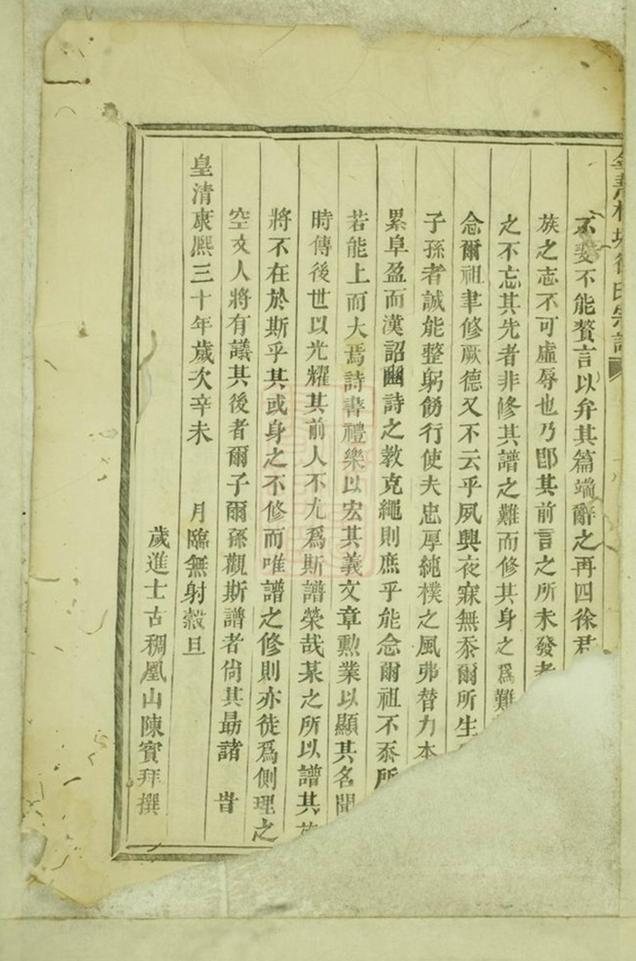 徐氏宗譜
不斐不能贅言以弁其篇端辭之再四徐君
族之志不可虛辱也乃卽其前言之所未發者
之不忘其先者非修其譜之難而修其身之爲難
念爾祖聿修厥德又不云乎夙興夜寐無忝爾所生
子孫者誠能整躬飭行使夫忠厚純樸之風弗替力本
累阜盈而漢詔豳詩之敎克繩則庶乎能念爾祖不忝所
若能上而大焉詩書禮樂以宏其義文章勳業以顯其名聞
時傳後世以光耀其前人不尤爲斯譜榮哉某之所以譜其族
將不在於斯乎其或身之不修而唯譜之修則亦徒爲側理之
空文人將有議其後者爾子爾孫觀斯譜者尙其勗諸 旹
皇清康熙三十年歲次辛未 月臨無射穀旦
歲進士古稠凰山陳賓拜撰